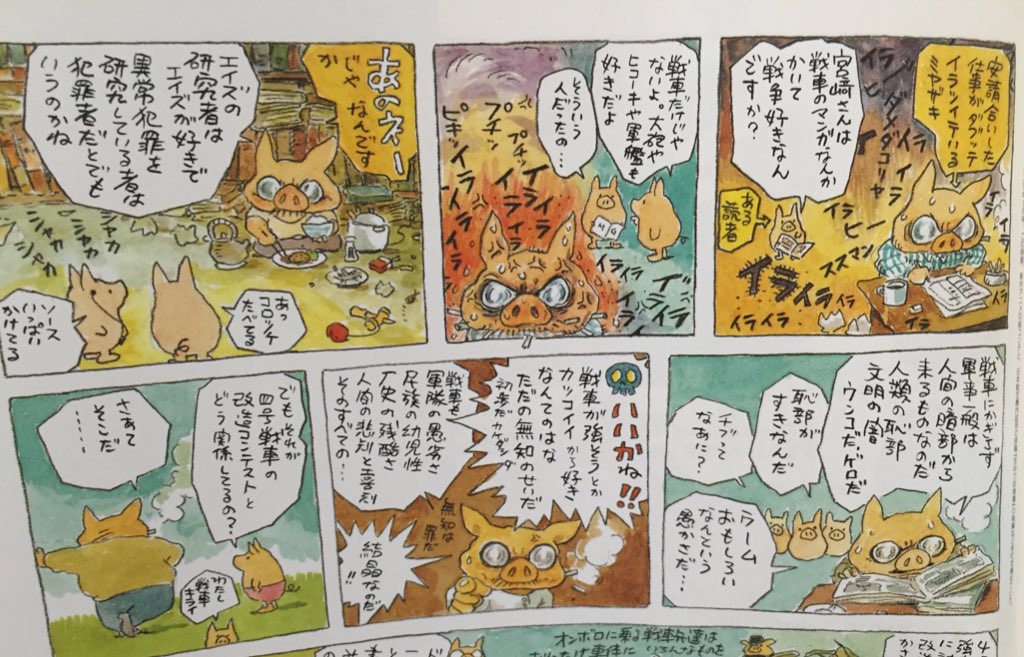 安請合いした
仕事がダブッテ
イライライテいる
ミヤザキ
宮崎さんは
戦車のマンガなんか
かいて
戦争好きなん
ですか?
ある
読者
イライラ
イライラ
戦車だけじゃ
ないよ。大砲や
ヒコーキや軍艦も
好きだよ
そういう
人だったの…
プチン
プチッ
ピキッ
イライラ
イライラ
MG
あのネー
じゃ なんです
か
エイズの
研究者は
エイズが好きで
研究している者は
異常犯罪を
犯罪者だとでも
いうのかね
シャカ
シャカ
シャカ
あっ
コロッケ
たべてる
ソース
いっぱい
かけてる
戦車にかぎらず
軍事一般は
人間の暗部から
来るものなのだ
人類の恥部
文明の闇
ウンコだゲロだ
恥部が
すきなんだ
チブって
なあに?
ウーム
おもしろい
ならという
愚かさだ…
いいかね!!
戦車が強そうとか
カッコイイから好き
なんてのはな
ただの無知のせいだ
初歩だカケダシダ
戦車も
軍隊の愚劣さ
民族の幼児性
歴史の残酷さ
人間の悲劇と喜劇
そのすべての…
無知は
罪だ
結晶なのだ
!!
でもそれが
四号戦車の
改造コンテストと
どう関係してるの?
さあて
そこだ
……
わたし
戦車
キライ
オンボロに乗る戦車兵達は